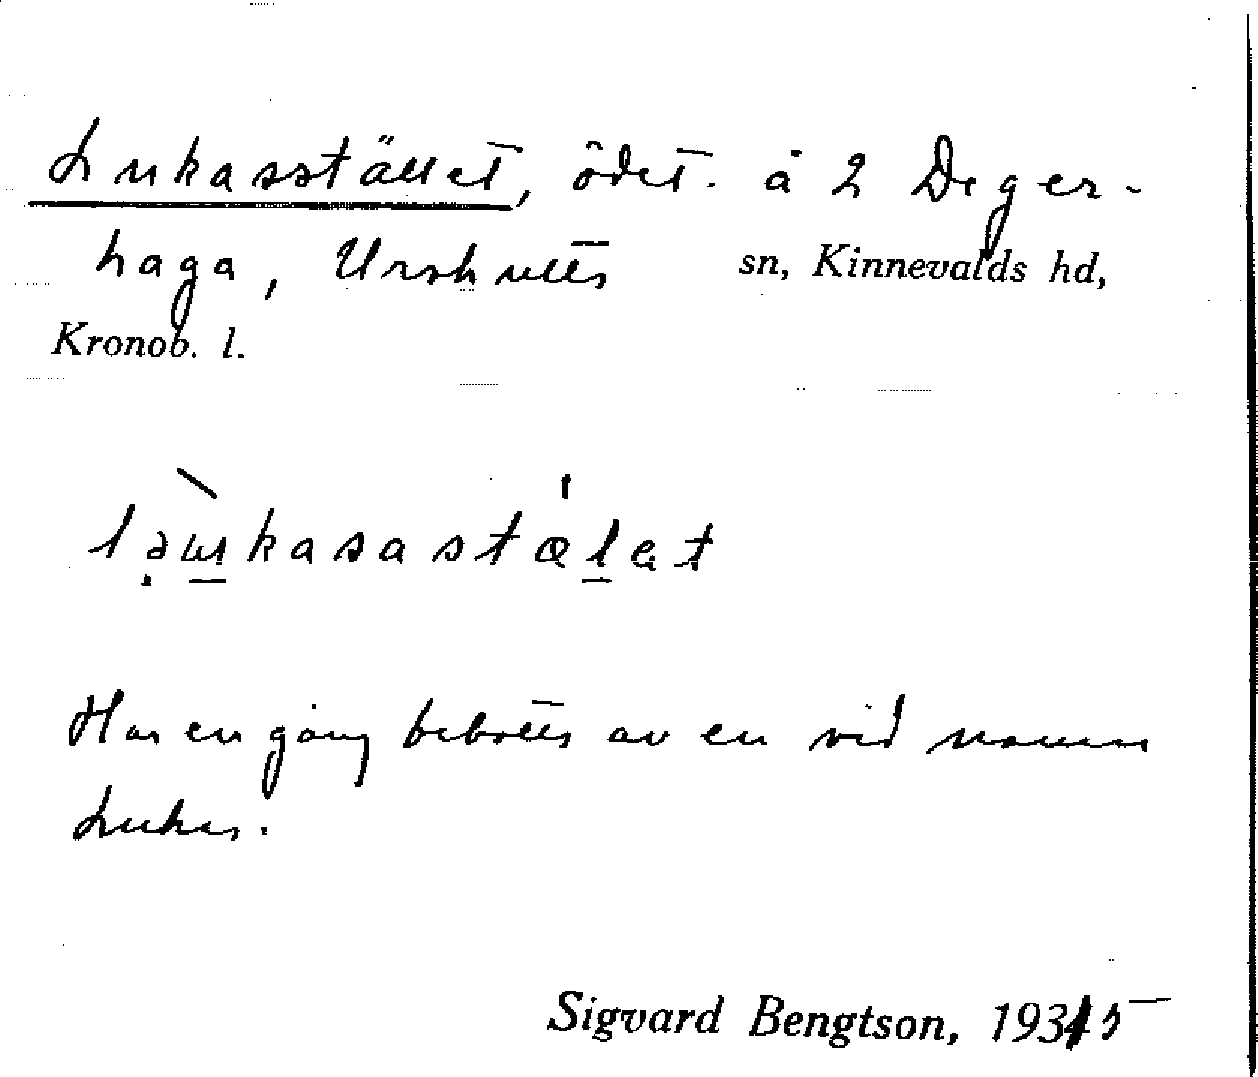 Lukasstället, ödet. å 2 Deger-
haga, Urshults sn, Kinnevalds hd,
Kronob. l.
Har en gång bebotts av en vid namn
Lukas.
Sigvard Bengtson, 1935